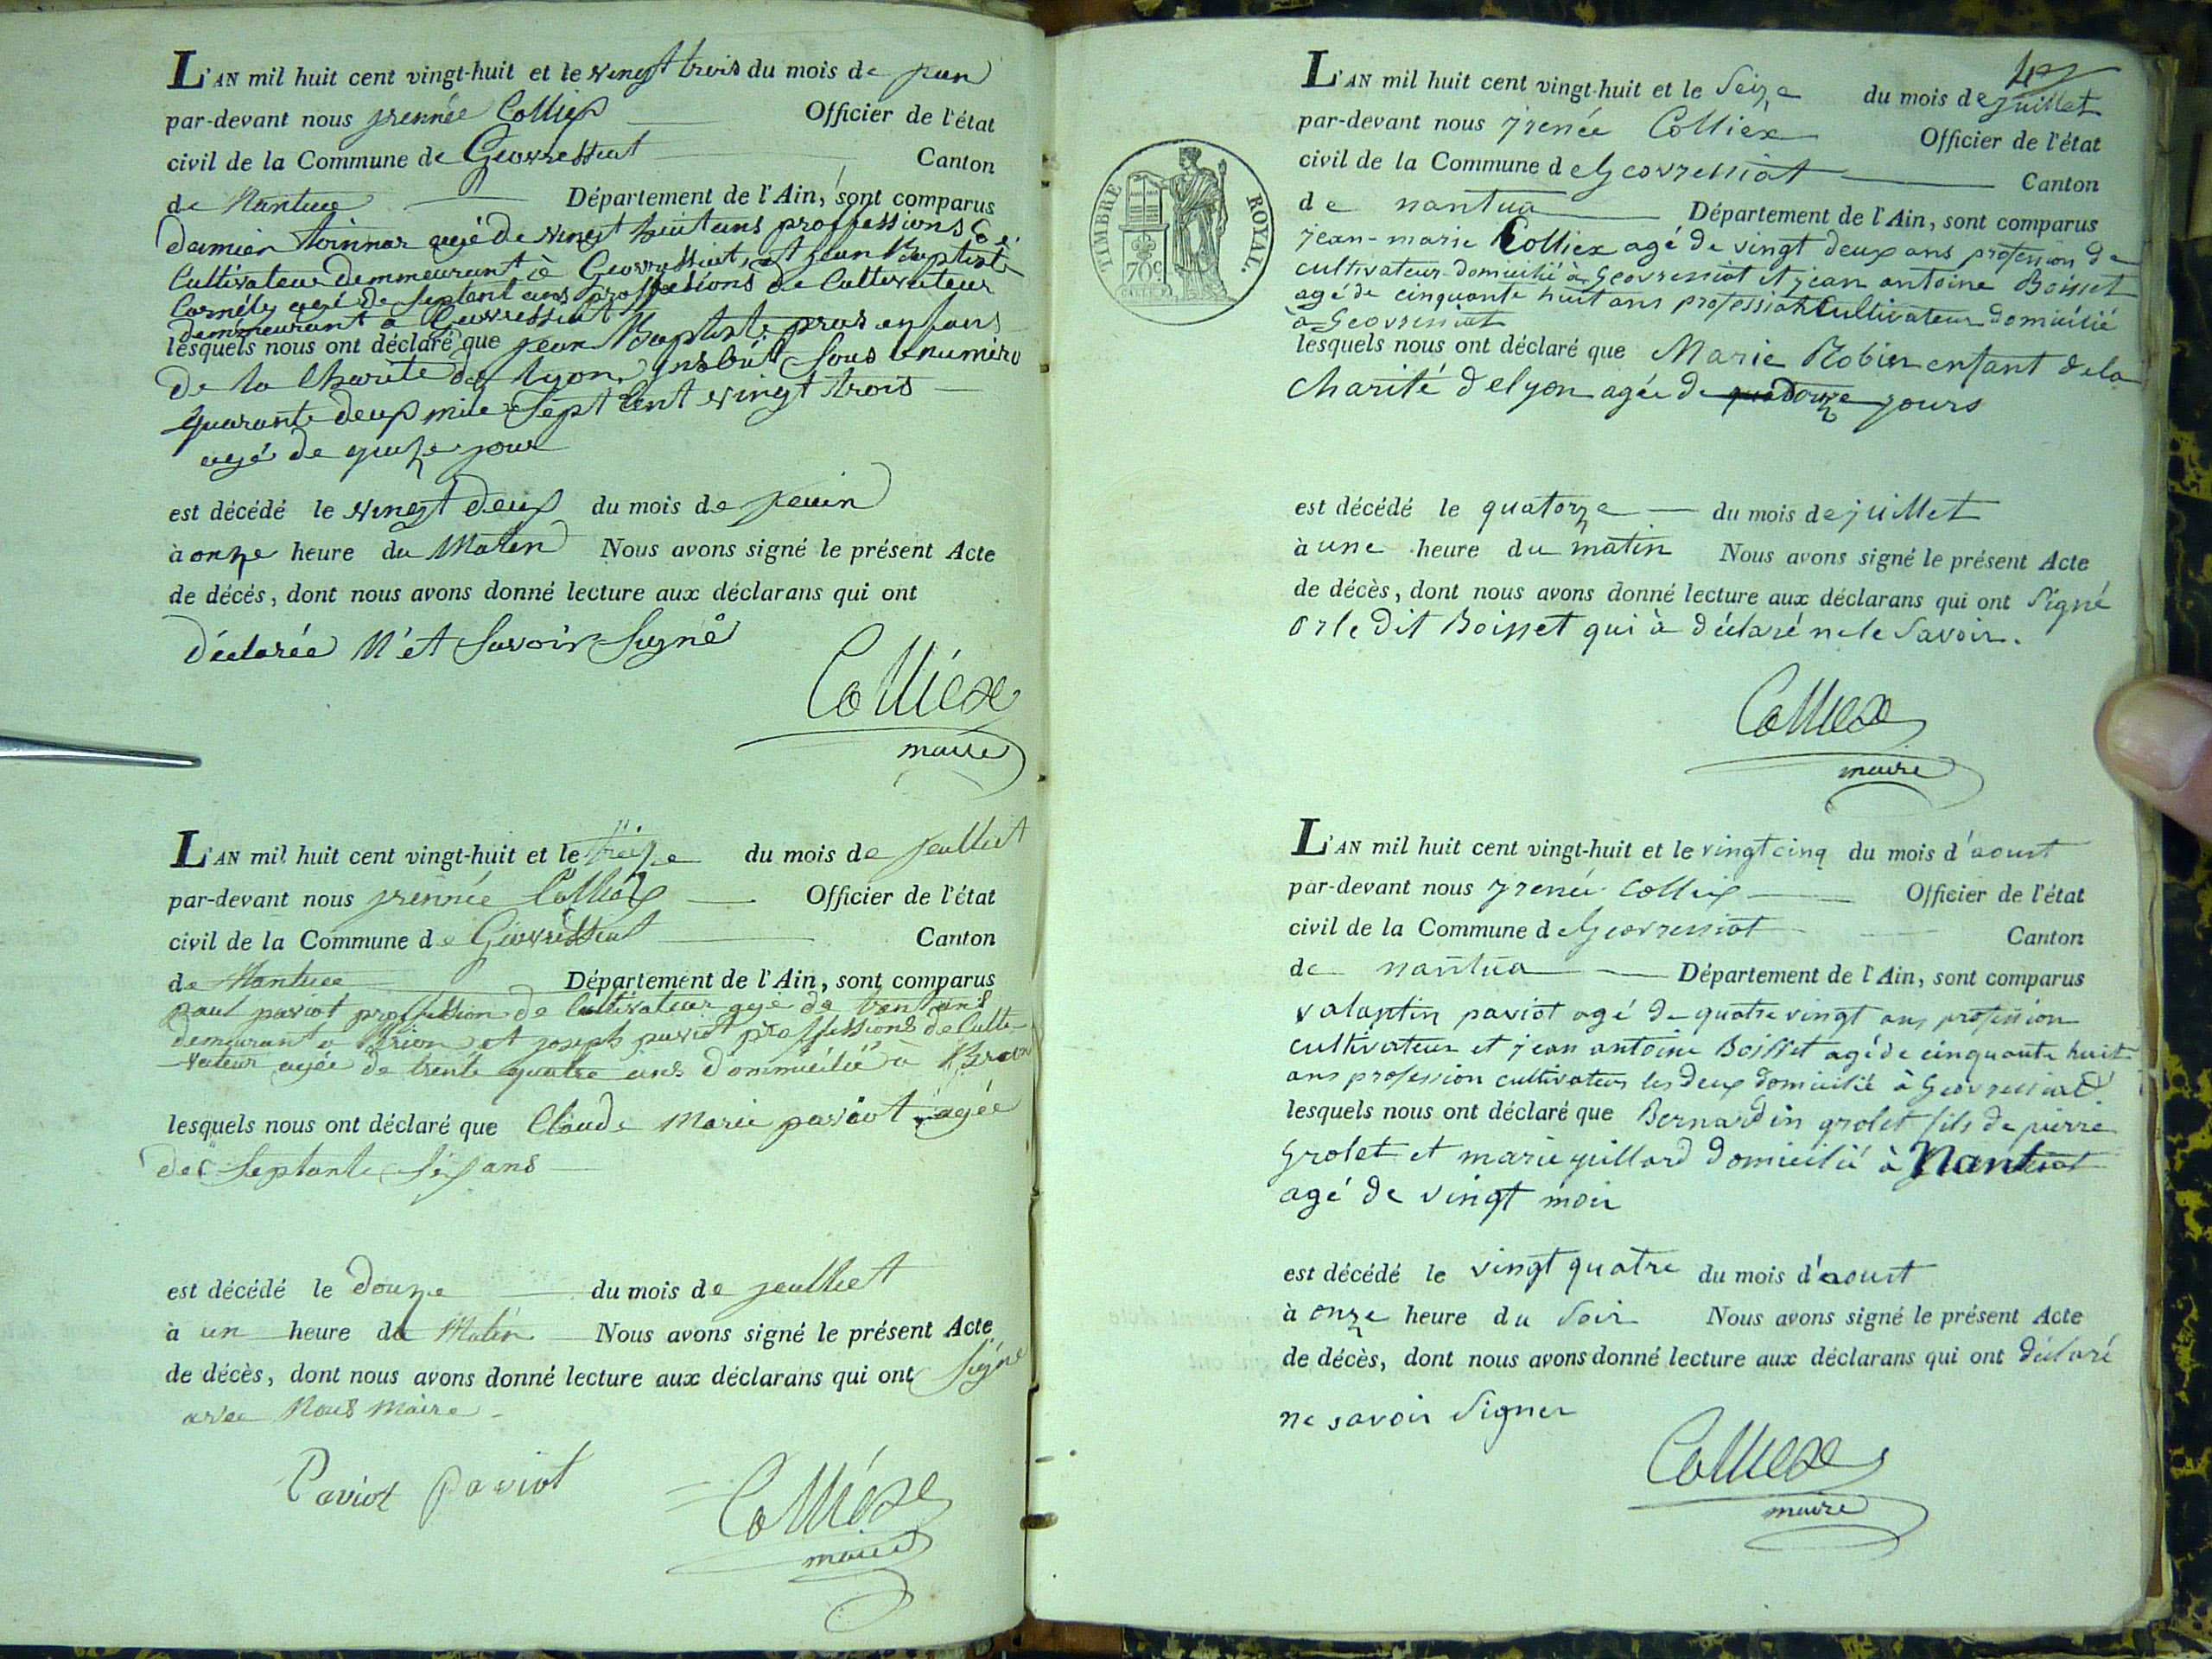 L'AN mil huit cent vingt-huit et le vingt trois du mois de juin
par-devant nous jrennée Colliex Officier de l'état
civil de la Commune de Geovressiat Canton
de Nantua Département de l'Ain, sont comparus
damien agé de vingt huit ans proffessions de
Cultivateur demmeurant à Geovressiat, et jean Baptiste
Cornély agé de septant ans proffessions de Cultivateur
demmeurant a Geovressiat
lesquels nous ont déclaré que jean Baptiste pras enfans
de la Charité de lyon inscrit sous le numéro
quarante deux mile sept Cent vingt trois
agé de quinze jour
est décédé le vingt deux du mois de jeuin
à onze heure du Maten Nous avons signé le présent Acte
de décés, dont nous avons donné lecture aux déclarans qui ont
déclarée N'ét savoir signé
Colliex
maire
L'AN mil huit cent vingt-huit et le treize du mois de jeulliet
par-devant nous jrennée Colliex Officier de l'état
civil de la Commune de Geovressiat Canton
de Nantua Département de l'Ain, sont comparus
paul paviot proffession de Cultivateur agé de trent ans
demeurant a Brion et joseph paviot proffessions de Culti-
vateur agée de trente quatre ans dommicilié à Brion
lesquels nous ont déclaré que Claude Marie paviot agée
de septante six ans
est décédé le douze du mois de jeulliet
à un heure du Matin Nous avons signé le présent Acte
de décès, dont nous avons donné lecture aux déclarans qui ont signé
avec Nous Maire
Paviot Paviot
Colliéx
maire
L'AN mil huit cent vingt-huit et le seize du mois de juillet
par-devant nous jrenée Colliex Officier de l'état
civil de la Commune de Geovressiat Canton
de nantua Département de l'Ain, sont comparus
jean-marie Colliex agé de vingt deux ans profession de
cultivateur domicilié a Geovressiat et jean antoine Boisset
agé de cinquante huit ans profession cultivateur domicilié
à Geovressiat
TIMBRE ROYAL.
70c
lesquels nous ont déclaré que Marie Robin enfant de la
charité de lyon agée de douze jours
est décédé le quatorze du mois de juillet
à une heure du matin Nous avons signé le présent Acte
de décès, dont nous avons donné lecture aux déclarans qui ont signé
or le dit Boisset qui à déclaré ne le savoir.
Colliex
maire
L'AN mil huit cent vingt-huit et le vingt cinq du mois d'aoust
par-devant nous jrenée Colliex Officier de l'état
civil de la Commune de Geovressiat Canton
de nantua Département de l'Ain, sont comparus
valantin paviot agé de quatre vingt ans profession
cultivateur et jean antoine Boisset agé de cinquante huit
ans profession cultivateur les deux domicilié à Geovressiat
lesquels nous ont déclaré que Bernardin grolet fils de pierre
Grolet et marie guillard domicilié à
agé de vingt mois
est décédé le vingt quatre du mois d'aoust
à onze heure du soir Nous avons signé le présent Acte
de décès, dont nous avons donné lecture aux déclarans qui ont déclaré
ne savoir signer
Colliex
maire